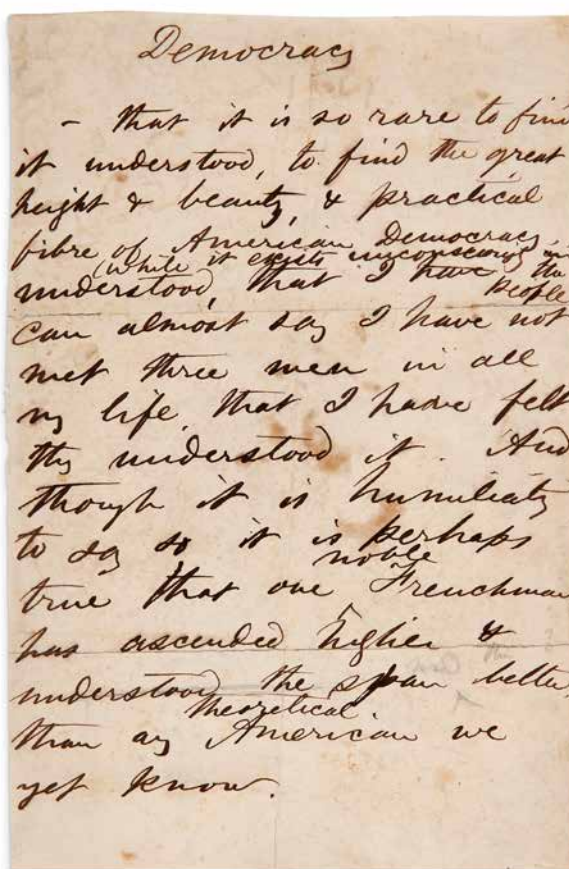 Democracy
– that it is so rare to find
it understood, to find the great
height & beauty, & practical
fibre of American Democracy,
(while it exists unconsciously in the people
understood, that I have
can almost say I have not
met three men in all
my life, that I have felt
thy understood it. And
though it is humiliaty
to say so it is perhaps
noble
true that one Frenchman
has ascended higher &
understood the span better,
theoretical
than any American we
yet know.